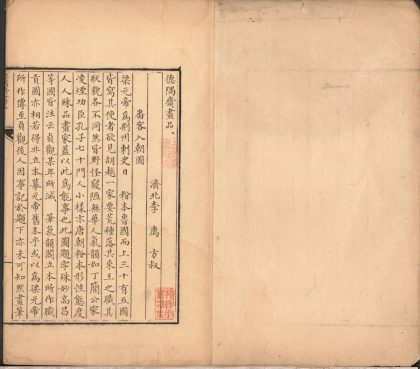 德隅齋畫品
濟北李廌方叔
番客入朝圖
梁元帝為荊州刺史日粉本魯國而上三十有五國
皆寫其使者欲見胡越一家要荒種落共來王之職其
狀貌各不同然皆野怪寢陋無華人氣韻如丁簡公家
凌煙功臣孔子七十門人小樣亦唐朝粉本形性態度
人人殊品畫家蓋以此為能事也此圖題字殊妙高昌
等國皆注云貞觀某年所滅筆氣韻閻立本所作職
貢圖亦相若得非立本摹元帝舊本乎或以為梁元帝
所作傳至貞觀後人因事記於題下亦未可知然畫筆